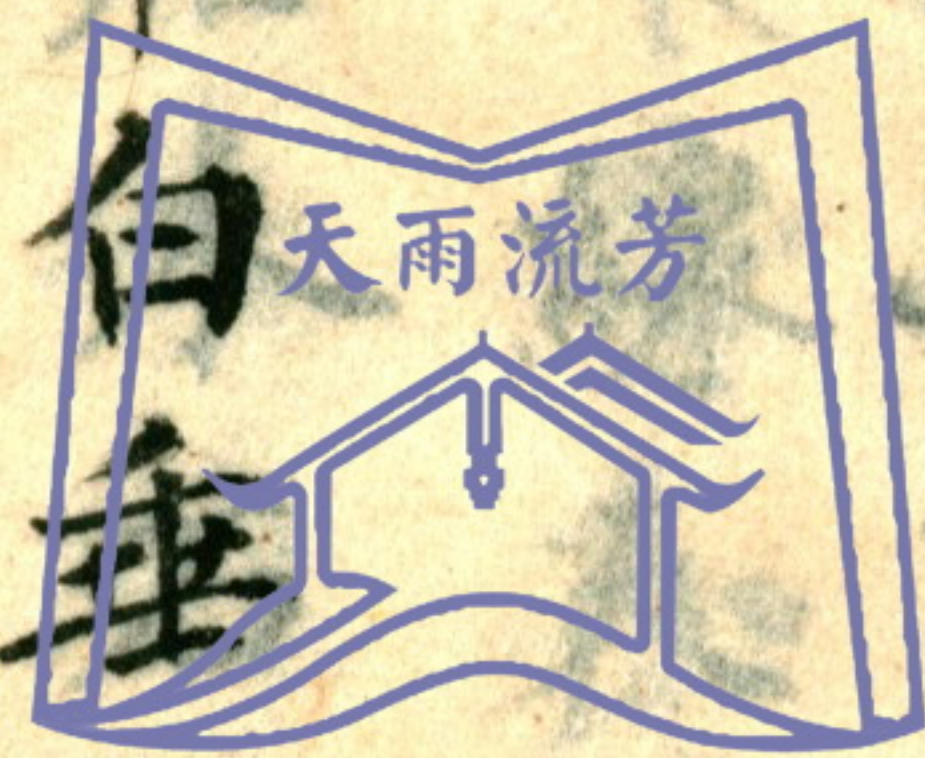 天雨流芳
白垂